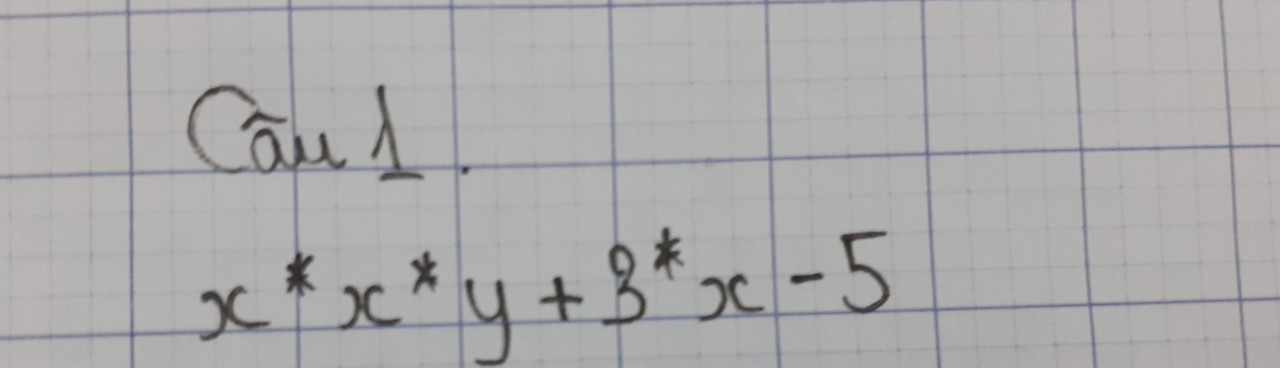 Câu 1.
x*x*y+3*x-5